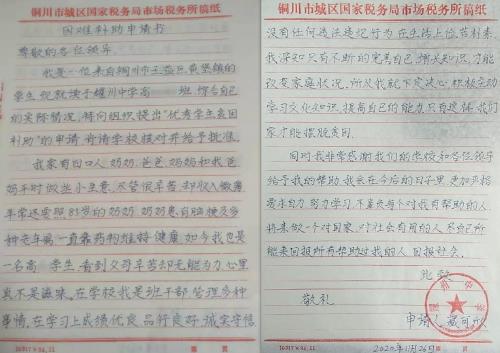 铜川市城区国家税务局市场税务所稿纸
困难补助申请书
尊敬的各位领导:
我是一位来自铜川市王益区黄堡镇的
学生,现就读于耀州中学高 班,综合自己
的实际情况,特向组织提出“优秀学生贫困
补助”的申请,奇请学校核对并给予批准。
我家有四口人,奶奶,爸爸,妈妈和我,爸
妈平时做些小生意,尽管很辛苦,却收入微薄
平常还要照81岁的奶奶,奶奶患有脑梗及多
种老年病一直靠药物维持健康,如今我也是
一名高 学生,看到父母辛苦却无能为力心里
真不是滋味,在学校我是班干部,管理多种
事情,在学习上成绩优良,品行良好,诚实守信,
铜川市城区国家税务局市场税务所稿纸
没有任何违法违纪行为,在生活上俭节朴素,
我深知只有不断的完善自己,增长知识,才能
改变家庭状况,所以我就下定决心,积极主动
学习文化知识,提高自己的能力,只有这样,我们
家才能摆脱贫困。
同时我非常感谢我们的学校和各位领导
给予我的帮助,我会在今后的日子里,更加严格
要求自己,努力学习,不辜负每个对我有帮助的人
将来做一个对国家,对社会有用的人,尽自己所
能来回报所有帮助过我的人,回报社会。
此致
敬礼
申请人
2020年11月26日